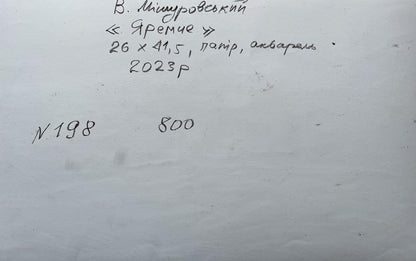 В. Мішуровський
« Яремче »
26 x 41,5, папір, акварель
2023р
N198 800